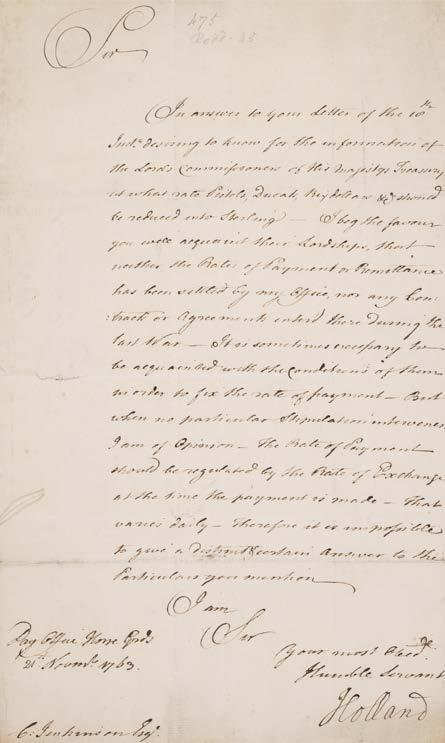 475
Sir
In answer to your Letter of the 10th
Inst. desiring to know for the information of
the Lords Commissioners of His Majestys Treasury
at what rate Pistols, Ducats, Rixdollars &c. should
be reduced into Sterling — I beg the favour
you will acquaint their Lordships, that
neither the Rates of Payment or Remittance
has been settled by my Office, nor any Con-
:tract or Agreements enter'd there during the
last War — It is sometimes necessary to
be acquainted with the Conditions of them
in order to fix the rate of payment — But
when no particular Stipulation intervenes
I am of Opinion — The Rate of Payment
should be regulated by the Rate of Exchange
at the time the payment is made — That
varies daily — Therefore it is impossible
to give a distinct & certain Answer to the
Particulars you mention
I am
Sir
Pay Office Horse Grds
21st Novemr. 1763.
Your most Obed.
Humble Servant
Holland
C: Jenkinson Esqr.